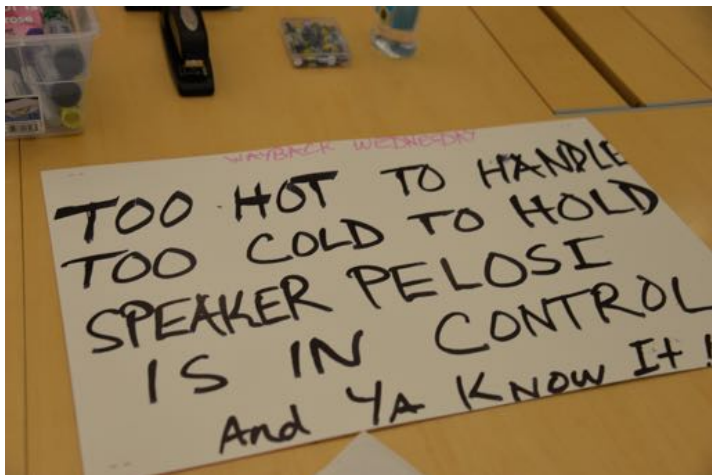 rose
WAYBACK WEDNESDAY
TOO HOT TO HANDLE
TOO COLD TO HOLD
SPEAKER PELOSI
IS IN CONTROL
And YA KNOW It!